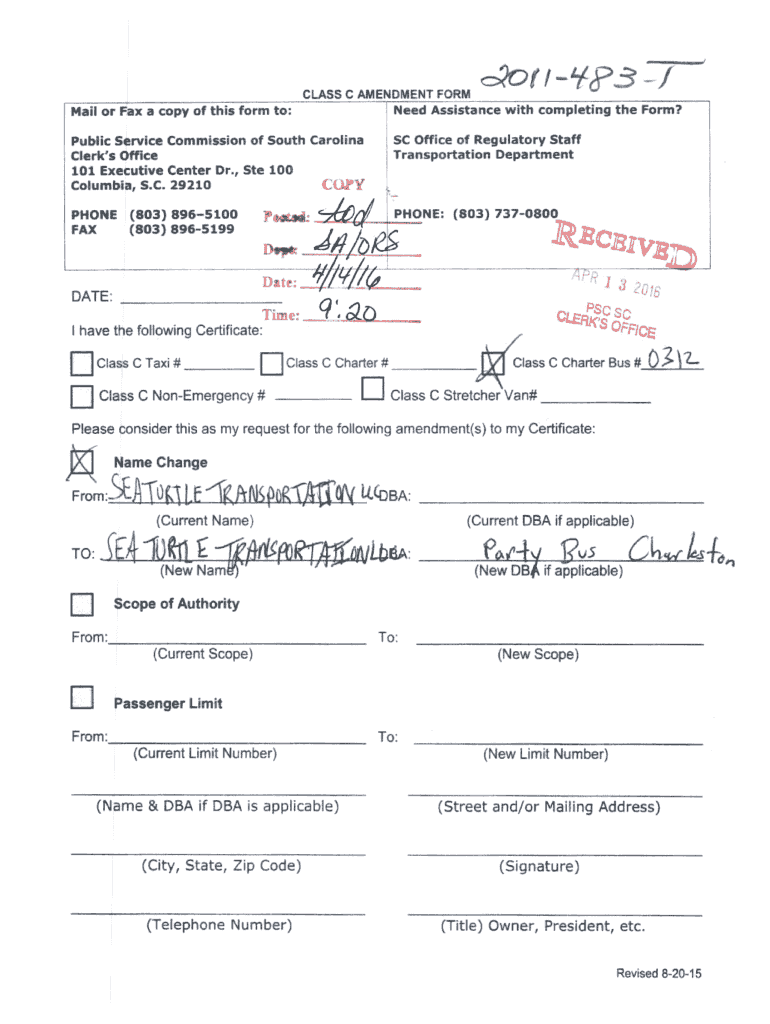 2011-483-T
CLASS C AMENDMENT FORM
Mail or Fax a copy of this form to:
Need Assistance with completing the Form?
Public Service Commission of South Carolina
Clerk's Office
101 Executive Center Dr., Ste 100
Columbia, S.C. 29210
SC Office of Regulatory Staff
Transportation Department
COPY
PHONE (803) 896-5100
FAX (803) 896-5199
PHONE: (803) 737-0800
Posted: tod
Dept: SA/ORS
Date: 4/14/16
Time: 9:20
RECEIVED
APR 13 2016
PSC SC
CLERK'S OFFICE
DATE:
I have the following Certificate:
Class C Taxi # Class C Charter # Class C Charter Bus # 0312
Class C Non-Emergency # Class C Stretcher Van#
Please consider this as my request for the following amendment(s) to my Certificate:
Name Change
From: SEA TURTLE TRANSPORTATION LLC DBA:
(Current Name) (Current DBA if applicable)
TO: SEA TURTLE TRANSPORTATION DBA: Party Bus Charleston
(New Name) (New DBA if applicable)
Scope of Authority
From: To:
(Current Scope) (New Scope)
Passenger Limit
From: To:
(Current Limit Number) (New Limit Number)
(Name & DBA if DBA is applicable) (Street and/or Mailing Address)
(City, State, Zip Code) (Signature)
(Telephone Number) (Title) Owner, President, etc.
Revised 8-20-15